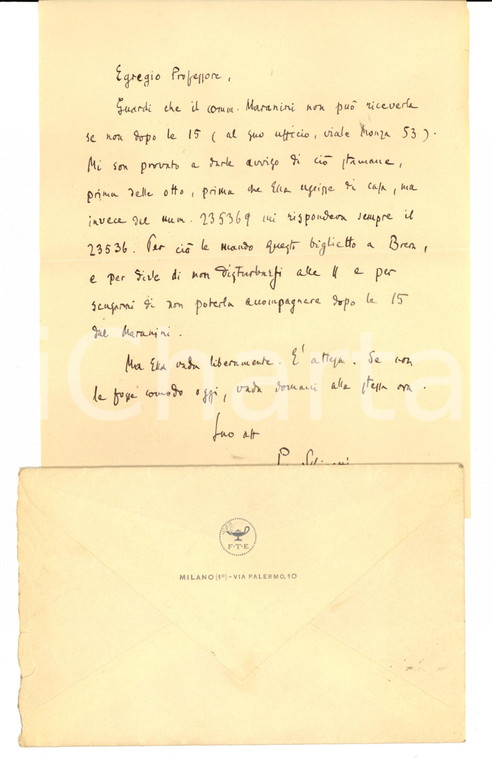 Egregio Professore,
Guardi che il comm. Maranini non può riceverla
se non dopo le 15 (al suo ufficio, viale Monza 53).
Mi son provato a darle avviso di ciò stamane,
prima delle otto, prima che Ella uscisse di casa, ma
invece del num. 235369 mi rispondeva sempre il
23536. Per ciò le mando questo biglietto a Brera,
e per dirle di non disturbarsi alle 11 e per
scusarmi di non poterla accompagnare dopo le 15
dal Maranini.
Ma Ella vada liberamente. E' attesa. Se non
le fosse comodo oggi, vada domani alla stessa ora.
Suo aff
iCharta
F·T·E
MILANO (1º) - VIA PALERMO, 10